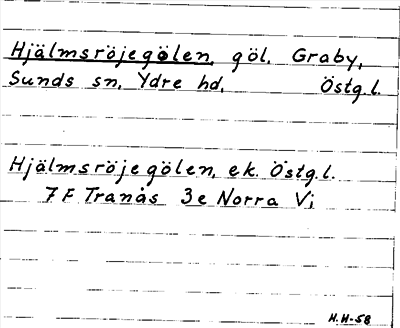 Hjälmsröjegölen, göl. Graby,
Sunds sn, Ydre hd, Östg.l.
Hjälmsröjegölen, ek. Östg.l.
7 F Tranås 3e Norra Vi
H.H-58